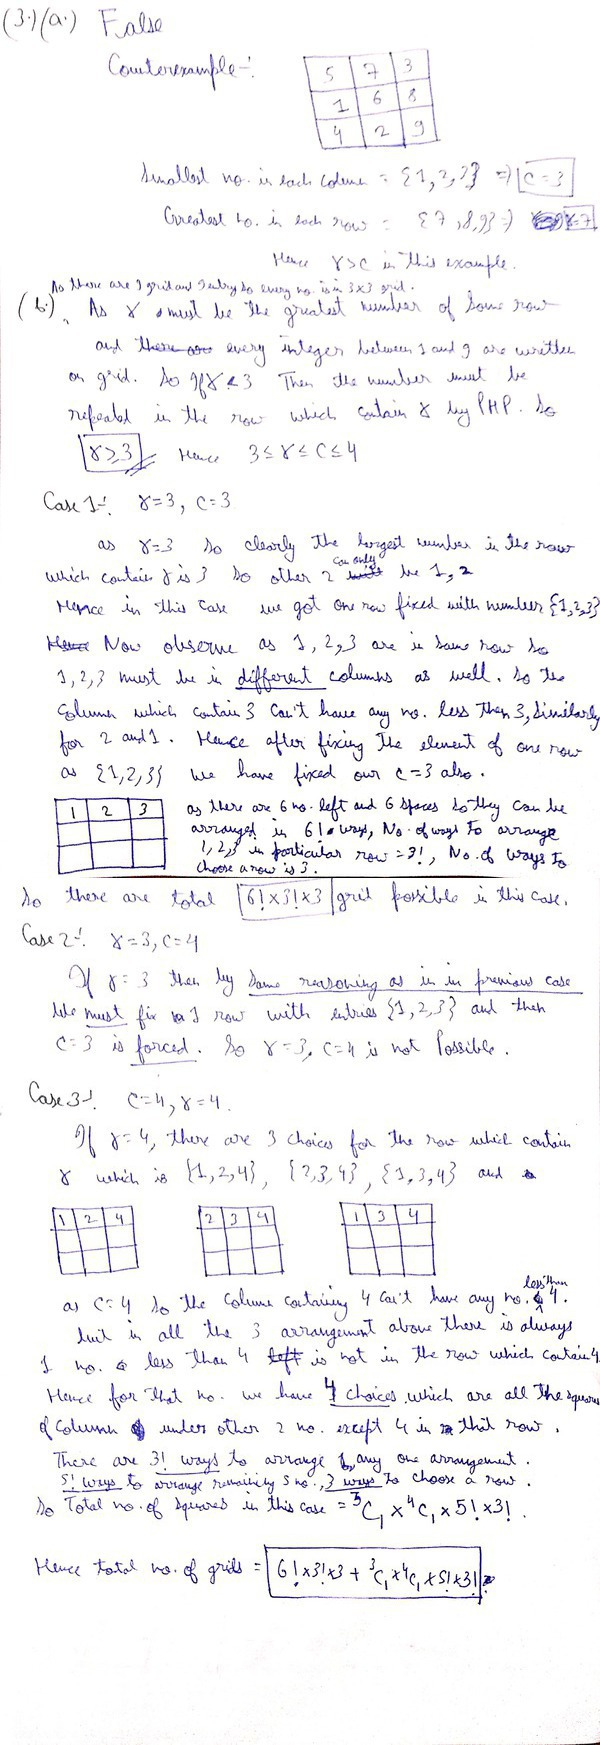 (3.)(a.) False
Counterexample:-
5 7 3
1 6 8
4 2 9
Smallest no. in each column = {1,2,3} ⇒ C=3
Greatest no. in each row = {7,8,9} ⇒ r=7
Hence r>c in this example.
As there are 9 grid and 9 entry so every no. is in 3x3 grid.
(b.) As r must be the greatest number of some row
and every integer between 1 and 9 are written
on grid. So If r<3 Then the number must be
repeated in the row which contain r by PHP. So
r≥3 Hence 3≤r≤c≤4
Case 1:- r=3, c=3
as r=3 so clearly the largest number in the row
which contain r is 3 so other 2 can only be 1, 2
Hence in this case we got one row fixed with number {1,2,3}
Now observe as 1, 2, 3 are in same row so
1, 2, 3 must be in different columns as well. So the
column which contain 3 can't have any no. less then 3, Similarly
for 2 and 1. Hence after fixing the element of one row
as {1,2,3} we have fixed our c=3 also.
1 2 3
as there are 6 no. left and 6 spaces so they can be
arranged in 6! ways, No. of ways to arrange
1,2,3 in particular row = 3!, No. of ways to
choose a row is 3.
So there are total 6!×3!×3 grid possible in this case.
Case 2:- r=3, c=4
If r=3 then by same reasoning as in in previous case
We must fix 1 row with entries {1,2,3} and then
c=3 is forced. So r=3, c=4 is not Possible.
Case 3:- c=4, r=4.
If r=4, there are 3 choices for the row which contain
r which is {1,2,4}, {2,3,4}, {1,3,4} and
1 2 4
2 3 4
1 3 4
as c=4 so the column containing 4 can't have any no. less than 4.
but in all the 3 arrangement above there is always
1 no. less than 4 is not in the row which contain 4.
Hence for that no. we have 4 choices which are all the squares
of column under other 2 no. except 4 in that row.
There are 3! ways to arrange any one arrangement.
5! ways to arrange remaining 5 no., 3 ways to choose a row.
So Total no. of squares in this case = ³C₁ × ⁴C₁ × 5! × 3!.
Hence total no. of grids = 6!×3!×3 + ³C₁×⁴C₁×5!×3!